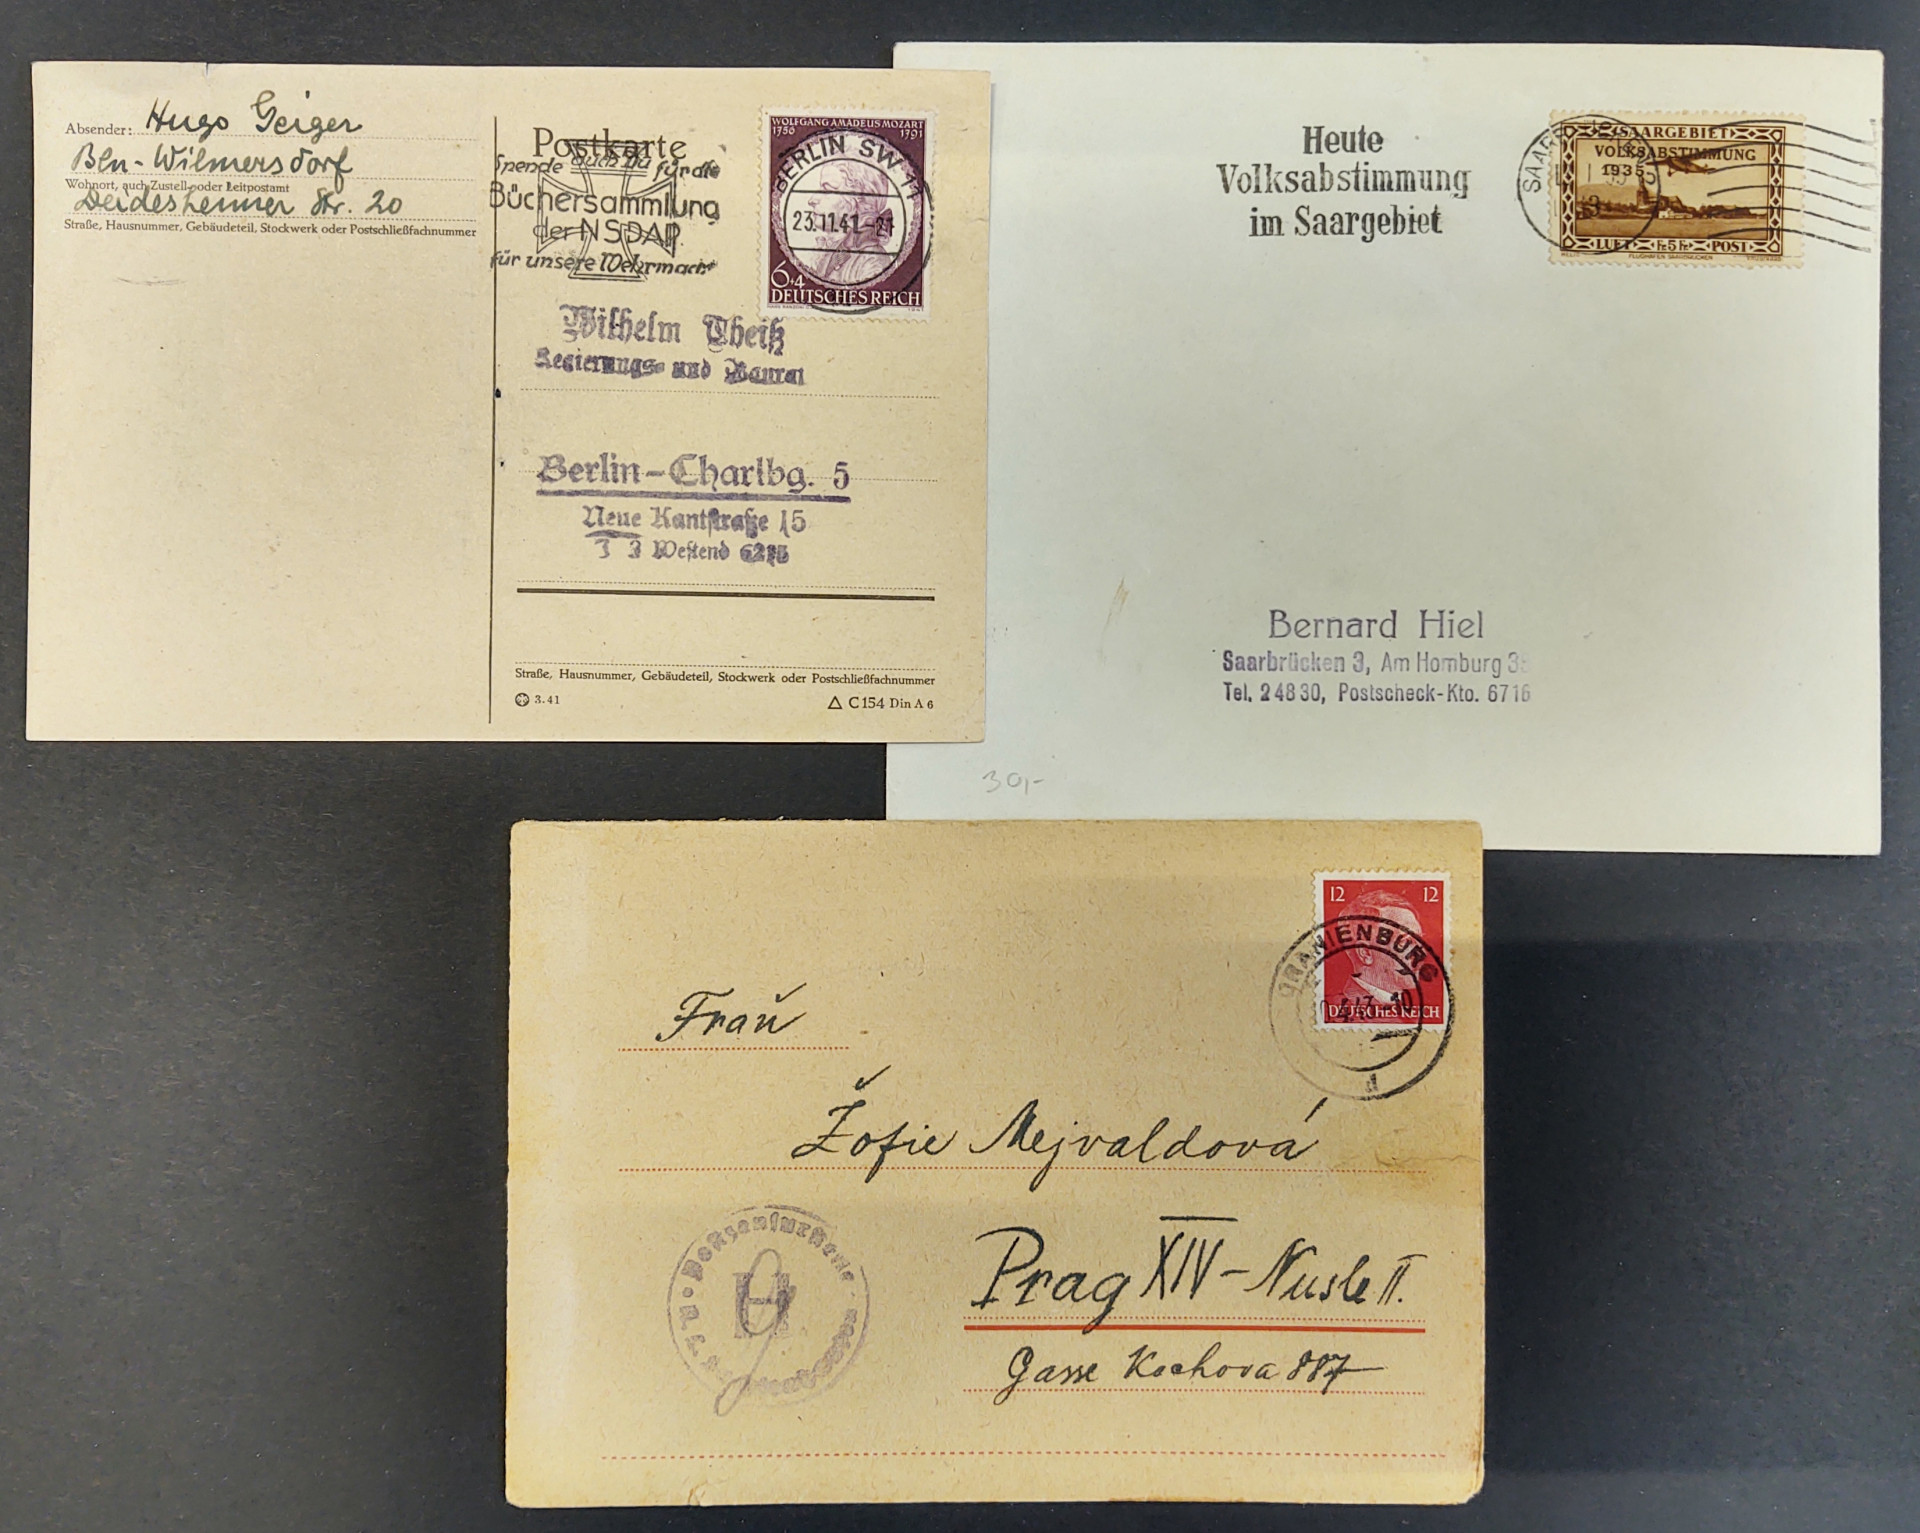 Absender: Hugo Geiger
Bln-Wilmersdorf
Wohnort, auch Zustell- oder Leitpostamt
Deidesheimer Str. 20
Straße, Hausnummer, Gebäudeteil, Stockwerk oder Postschließfachnummer
Postkarte
Spende auch Du für die
Büchersammlung
der NSDAP.
für unsere Wehrmacht
WOLFGANG AMADEUS MOZART
1756 1791
BERLIN SW 11
23.11.41.-21
6+4
DEUTSCHES REICH
Wilhelm Theiß
Regierungs- und Baurat
Berlin-Charlbg. 5
Neue Kantstraße 15
Westend
Straße, Hausnummer, Gebäudeteil, Stockwerk oder Postschließfachnummer
3.41
C 154 Din A 6
Heute
Volksabstimmung
im Saargebiet
SAARGEBIET
VOLKSABSTIMMUNG
1935
LUFT Fr. 5 Fr. POST
FLUGHAFEN SAARBRÜCKEN
Bernard Hiel
Saarbrücken 3, Am Homburg
Tel. 24830, Postscheck-Kto. 6716
30,-
12 12
ORANIENBURG
DEUTSCHES REICH
d
Frau
Žofie Mejvaldová
Postzensurstelle
Prag XIV-Nusle II.
Gasse Kochova 887